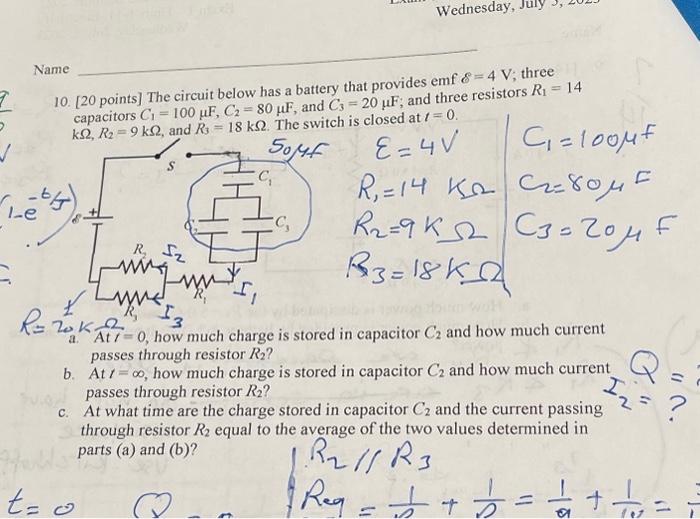 Wednesday, July 5,
Name
10. [20 points] The circuit below has a battery that provides emf ℰ = 4 V; three
capacitors C₁ = 100 μF, C₂ = 80 μF, and C₃ = 20 μF; and three resistors R₁ = 14
kΩ, R₂ = 9 kΩ, and R₃ = 18 kΩ. The switch is closed at t = 0.
50μF
S
C₁
C₃
R₂ I₂
R₁ I₁
R₃ I₃
R = 20 KΩ
(1-e^-t/
ℰ = 4V
R₁ = 14 KΩ
R₂ = 9 KΩ
R₃ = 18 KΩ
C₁ = 100μF
C₂ = 80μF
C₃ = 20μF
a. At t = 0, how much charge is stored in capacitor C₂ and how much current
passes through resistor R₂?
b. At t = ∞, how much charge is stored in capacitor C₂ and how much current
passes through resistor R₂?
Q =
I₂ = ?
c. At what time are the charge stored in capacitor C₂ and the current passing
through resistor R₂ equal to the average of the two values determined in
parts (a) and (b)?
R₂ // R₃
t = 0 Q
Req = 1 + 1 = 1 + 1 =